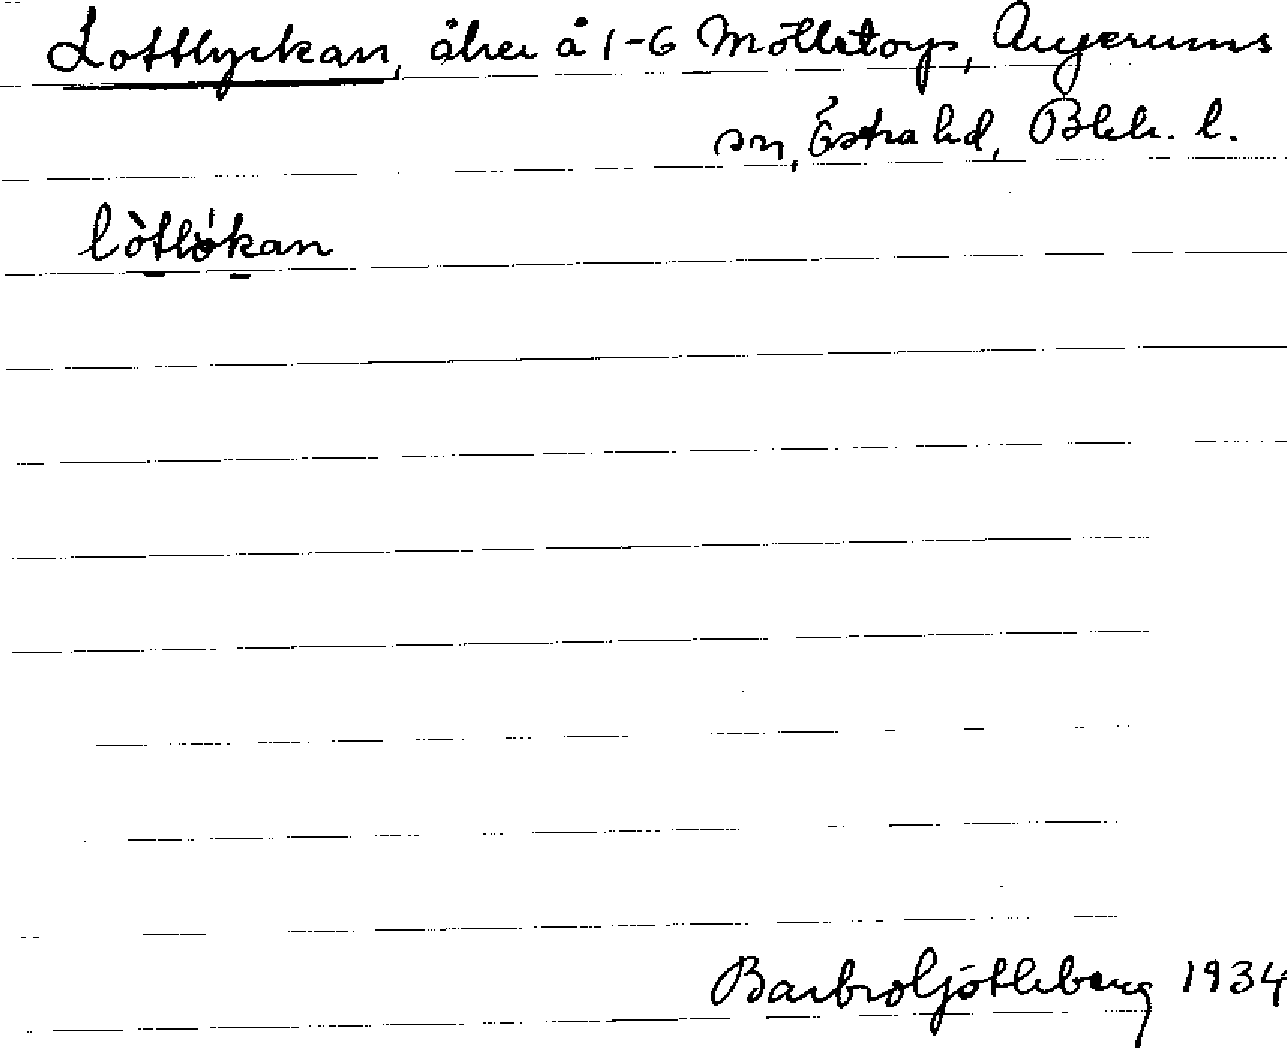 Lottlyckan, åker å 1-6 Mölletorp, Augerums
sn, Östra hd, Blek. l.
lòtløkan
Barbro Ljötleberg 1934